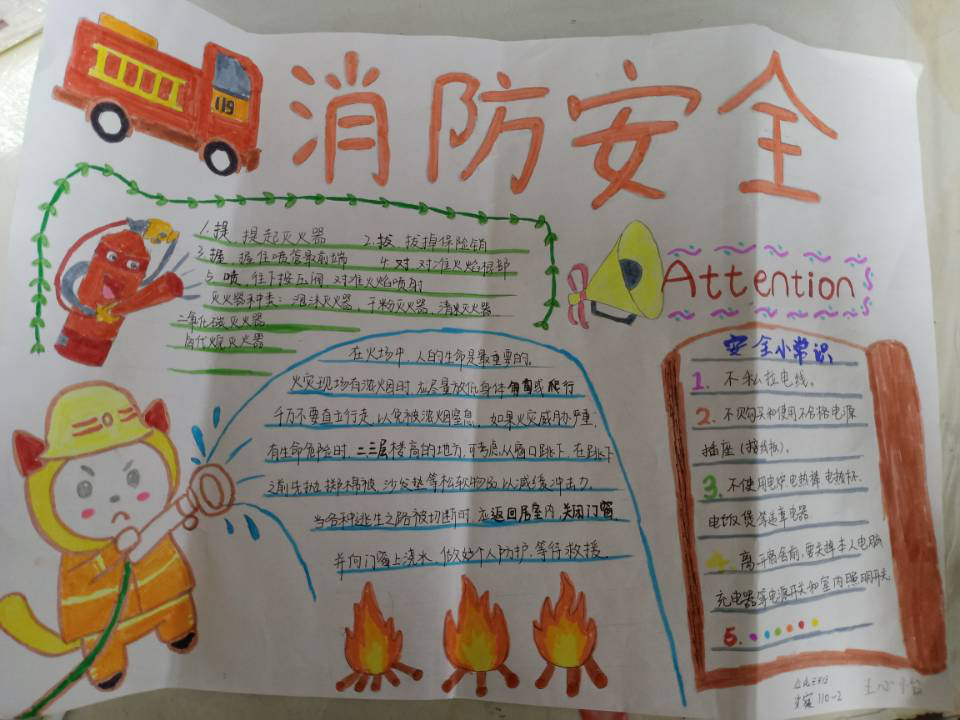 消防安全
119
1.提,提起灭火器 2.拔,拔掉保险销
3.握,握住喷管最前端 4.对,对准火焰根部
5.喷,往下按压阀 对准火焰喷射
灭火器种类:泡沫灭火器,干粉灭火器,清水灭火器
二氧化碳灭火器
卤代烷灭火器
Attention
在火场中,人的生命是最重要的。
火灾现场有浓烟时,应尽量放低身体匍匐或爬行
千万不要直立行走,以免被浓烟窒息。如果火灾威胁严重,
有生命危险时,二三层楼高的地方,可考虑从窗口跳下,在跳下
之前先抛掷棉被、沙发垫等松软物品以减缓冲击力。
当各种逃生之路被切断时,应返回居室内,关闭门窗
并向门窗上浇水,做好个人防护,等待救援
安全小常识
1. 不私拉电线。
2. 不购买和使用不合格电源
插座(接线板)。
3. 不使用电炉,电热棒,电热杯,
电饭煲等违章电器
4. 离开宿舍前,要关掉本人电脑
充电器等电源开关和室内照明开关
5.
110-2